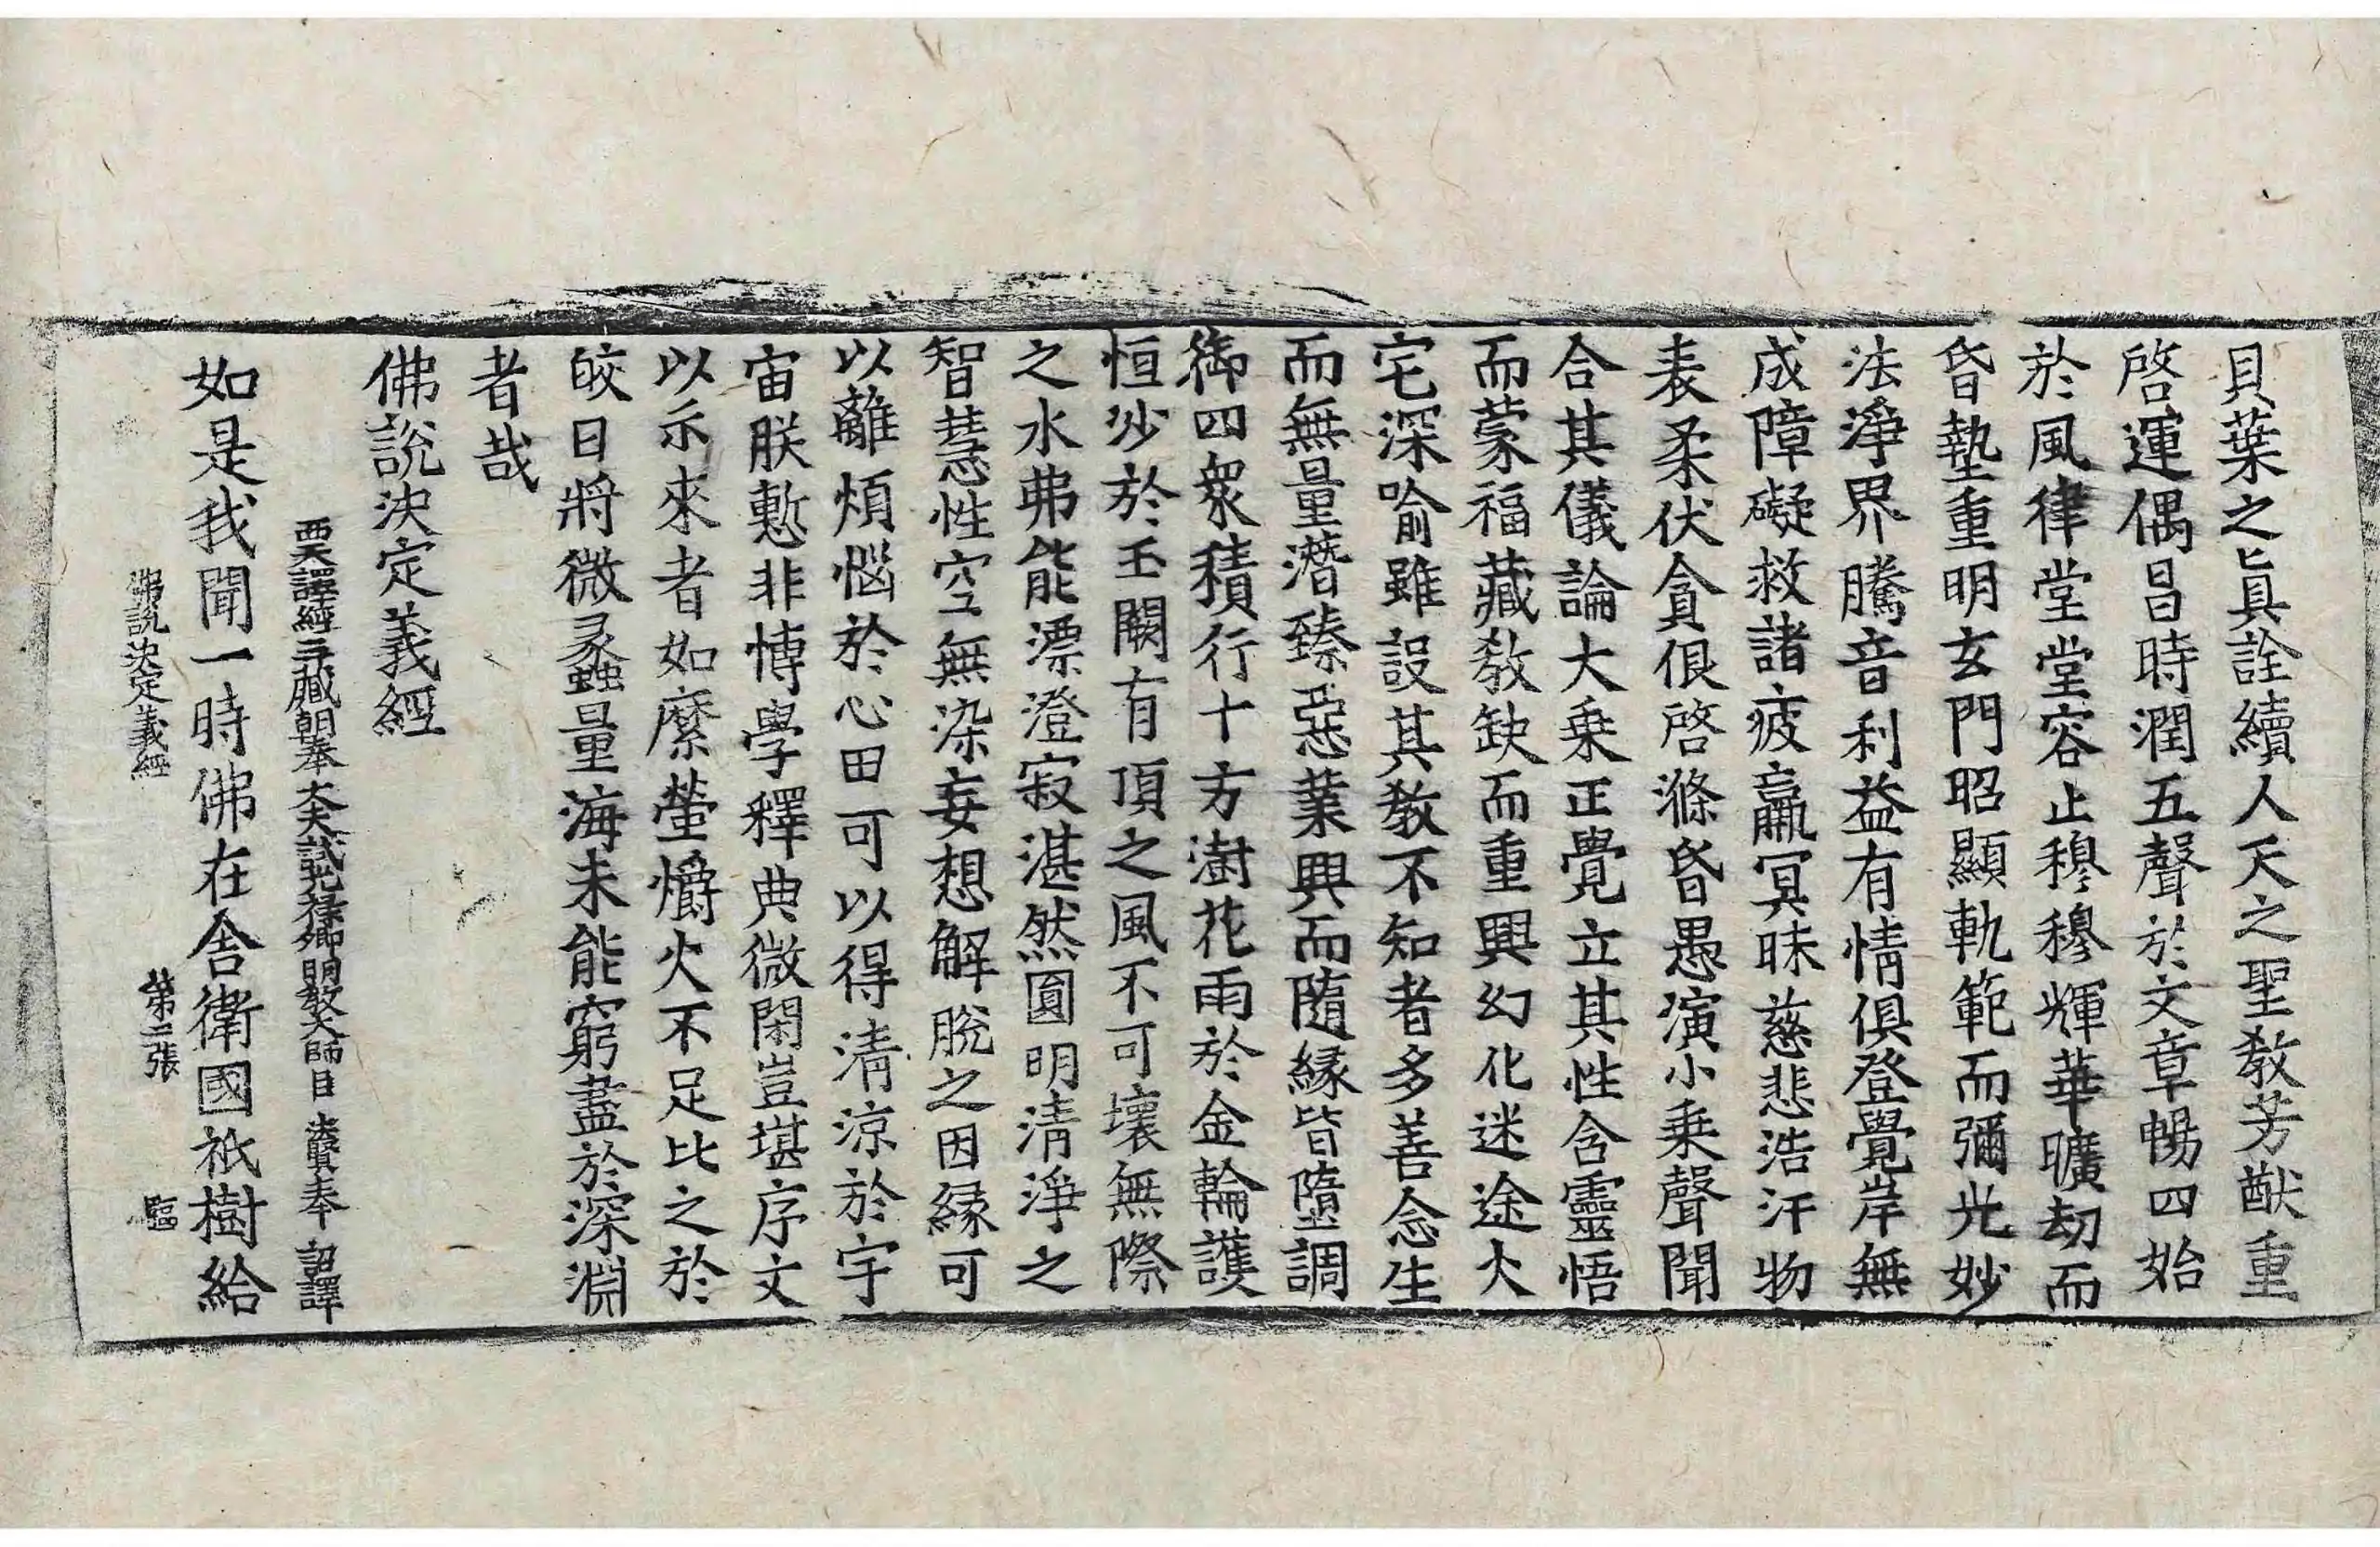 貝葉之眞詮續人天之聖教芳猷重
啓運偶昌時潤五聲於文章暢四始
於風律堂堂容止穆穆輝華曠劫而
昏墊重明玄門昭顯軌範而彌光妙
法淨界騰音利益有情俱登覺岸無
成障礙救諸疲羸冥昧慈悲浩汗物
表柔伏貪佷啓滌昏愚演小乗聲聞
合其儀論大乗正覺立其性含靈悟
而蒙福藏教缺而重興幻化迷途火
宅深喩雖設其教不知者多善念生
而無量潛臻惡業興而隨縁皆墮調
御四衆積行十方澍花雨於金輪護
恒沙於玉闕有頂之風不可壞無際
之水弗能漂澄寂湛然圓明清淨之
智慧性空無染妄想解脫之因縁可
以離煩惱於心田可以得清涼於宇
宙朕慙非博學釋典微閑豈堪序文
以示來者如縻螢爝火不足比之於
皎日將微彖蟲量海未能窮盡於深淵
者哉
佛說決定義經
西天譯經三藏朝奉大夫試光祿卿明教大師臣 法賢奉 詔譯
如是我聞一時佛在舍衛國祇樹給
佛說決定義經 第二張 驅